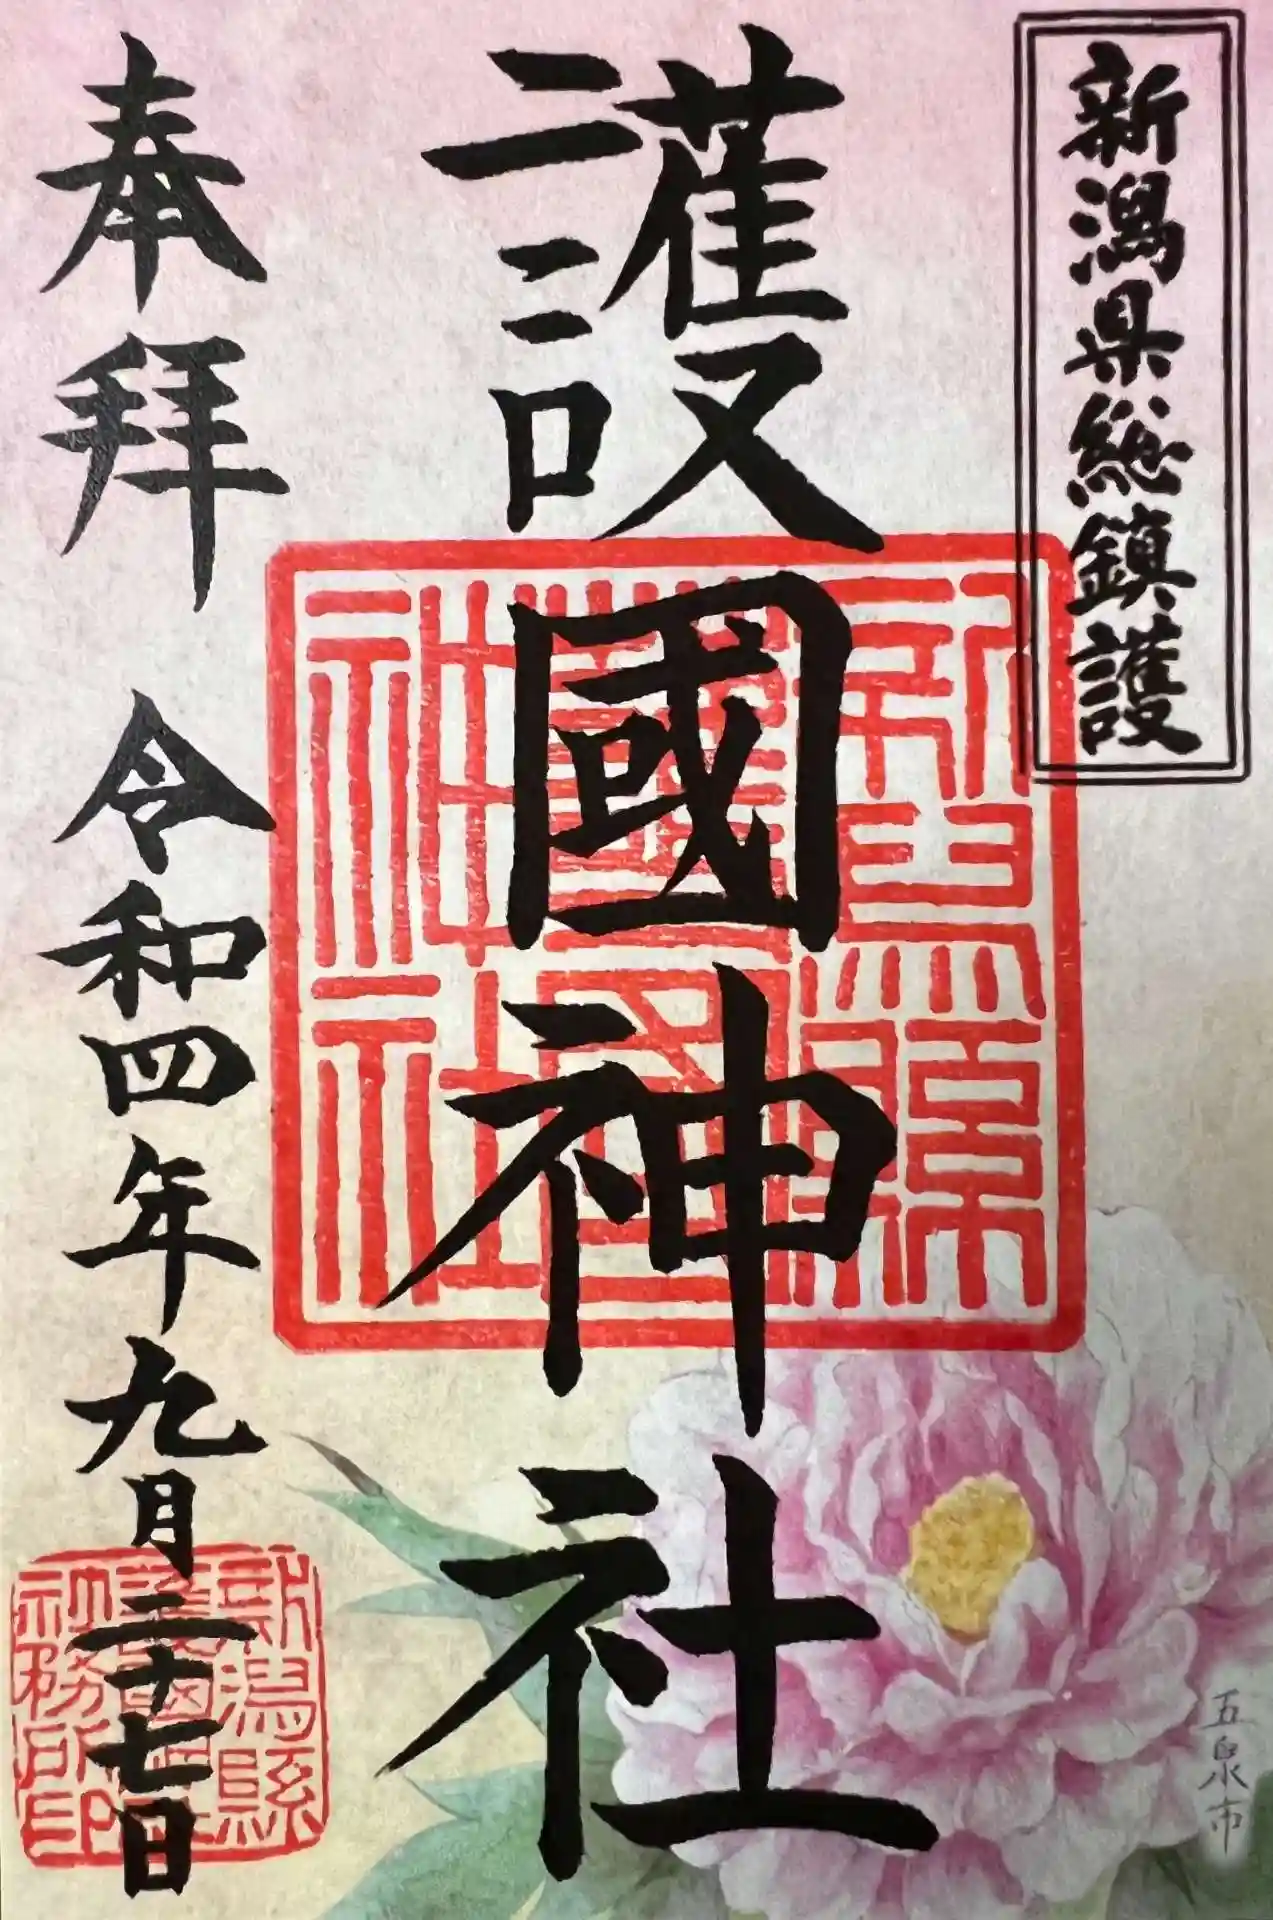 新潟県総鎮護
護國神社
奉拝
令和四年九月二十七日
新潟縣護國神社
新潟縣護國神社社務所印
五泉市